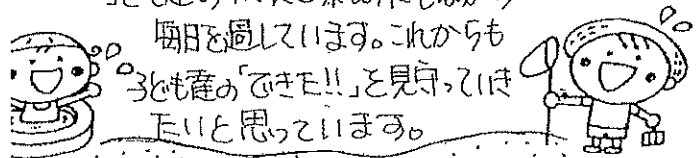 毎日を過しています。これからも
子ども達の「できた!!」と見守っていき
たいと思っています。